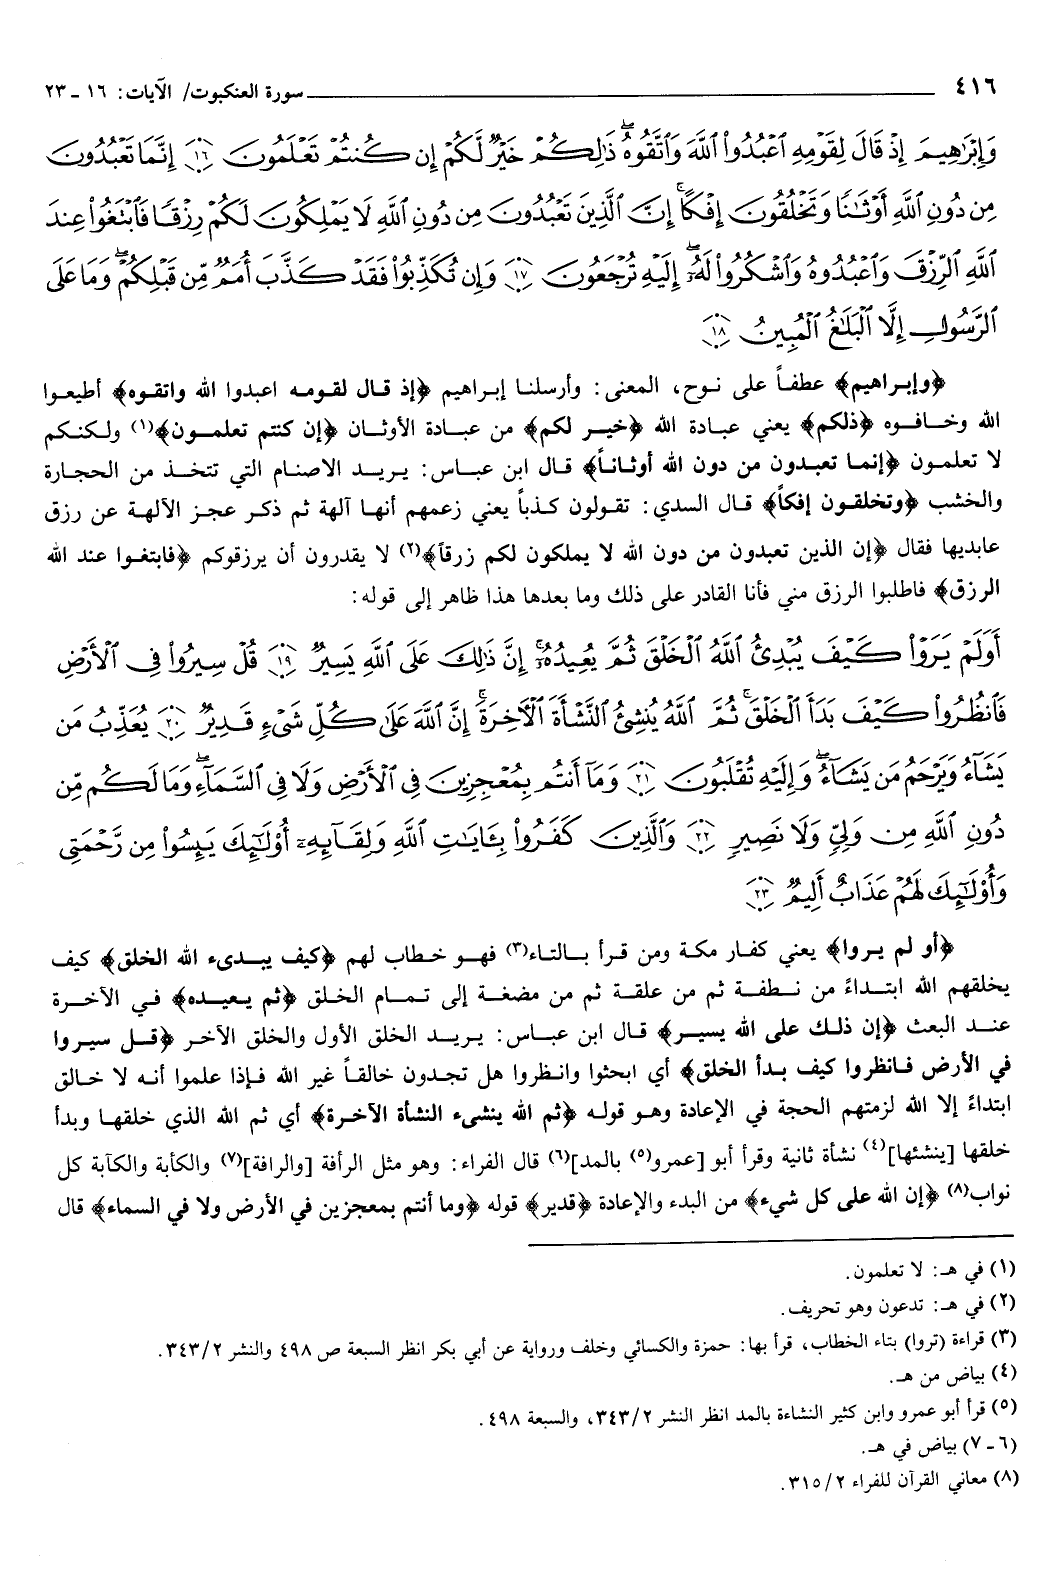 ٤١٦ سورة العنكبوت/ الآيات: ١٦ - ٢٣
وَإِبْرَٰهِيمَ إِذْ قَالَ لِقَوْمِهِ ٱعْبُدُواْ ٱللَّهَ وَٱتَّقُوهُۖ ذَٰلِكُمْ خَيْرٌ لَّكُمْ إِن كُنتُمْ تَعْلَمُونَ ١٦ إِنَّمَا تَعْبُدُونَ
مِن دُونِ ٱللَّهِ أَوْثَٰنًا وَتَخْلُقُونَ إِفْكًاۚ إِنَّ ٱلَّذِينَ تَعْبُدُونَ مِن دُونِ ٱللَّهِ لَا يَمْلِكُونَ لَكُمْ رِزْقًا فَٱبْتَغُواْ عِندَ
ٱللَّهِ ٱلرِّزْقَ وَٱعْبُدُوهُ وَٱشْكُرُواْ لَهُۥۖ إِلَيْهِ تُرْجَعُونَ ١٧ وَإِن تُكَذِّبُواْ فَقَدْ كَذَّبَ أُمَمٌ مِّن قَبْلِكُمْۖ وَمَا عَلَى
ٱلرَّسُولِ إِلَّا ٱلْبَلَٰغُ ٱلْمُبِينُ ١٨
﴿وإبراهيم﴾ عطفاً على نوح، المعنى: وأرسلنا إبراهيم ﴿إذ قال لقومه اعبدوا الله واتقوه﴾ أطيعوا
الله وخافوه ﴿ذلكم﴾ يعني عبادة الله ﴿خير لكم﴾ من عبادة الأوثان ﴿إن كنتم تعلمون﴾(١) ولكنكم
لا تعلمون ﴿إنما تعبدون من دون الله أوثاناً﴾ قال ابن عباس: يريد الاصنام التي تتخذ من الحجارة
والخشب ﴿وتخلقون إفكاً﴾ قال السدي: تقولون كذباً يعني زعمهم أنها آلهة ثم ذكر عجز الآلهة عن رزق
عابديها فقال ﴿إن الذين تعبدون من دون الله لا يملكون لكم زرقاً﴾(٢) لا يقدرون أن يرزقوكم ﴿فابتغوا عند الله
الرزق﴾ فاطلبوا الرزق مني فأنا القادر على ذلك وما بعدها هذا ظاهر إلى قوله:
أَوَلَمْ يَرَوْاْ كَيْفَ يُبْدِئُ ٱللَّهُ ٱلْخَلْقَ ثُمَّ يُعِيدُهُۥٓۚ إِنَّ ذَٰلِكَ عَلَى ٱللَّهِ يَسِيرٌ ١٩ قُلْ سِيرُواْ فِى ٱلْأَرْضِ
فَٱنظُرُواْ كَيْفَ بَدَأَ ٱلْخَلْقَۚ ثُمَّ ٱللَّهُ يُنشِئُ ٱلنَّشْأَةَ ٱلْأَخِرَةَۚ إِنَّ ٱللَّهَ عَلَىٰ كُلِّ شَىْءٍ قَدِيرٌ ٢٠ يُعَذِّبُ مَن
يَشَآءُ وَيَرْحَمُ مَن يَشَآءُۖ وَإِلَيْهِ تُقْلَبُونَ ٢١ وَمَآ أَنتُم بِمُعْجِزِينَ فِى ٱلْأَرْضِ وَلَا فِى ٱلسَّمَآءِۖ وَمَا لَكُم مِّن
دُونِ ٱللَّهِ مِن وَلِىٍّ وَلَا نَصِيرٍ ٢٢ وَٱلَّذِينَ كَفَرُواْ بِـَٔايَٰتِ ٱللَّهِ وَلِقَآئِهِۦٓ أُوْلَٰٓئِكَ يَئِسُواْ مِن رَّحْمَتِى
وَأُوْلَٰٓئِكَ لَهُمْ عَذَابٌ أَلِيمٌ ٢٣
﴿أو لم يروا﴾ يعني كفار مكة ومن قرأ بالتاء(٣) فهو خطاب لهم ﴿كيف يبدىء الله الخلق﴾ كيف
يخلقهم الله ابتداءً من نطفة ثم من علقة ثم من مضغة إلى تمام الخلق ﴿ثم يعيده﴾ في الآخرة
عند البعث ﴿إن ذلك على الله يسير﴾ قال ابن عباس: يريد الخلق الأول والخلق الآخر ﴿قل سيروا
في الأرض فانظروا كيف بدأ الخلق﴾ أي ابحثوا وانظروا هل تجدون خالقاً غير الله فإذا علموا أنه لا خالق
ابتداءً إلا الله لزمتهم الحجة في الإعادة وهو قوله ﴿ثم الله ينشىء النشأة الآخرة﴾ أي ثم الله الذي خلقها وبدأ
خلقها [ينشئها](٤) نشأة ثانية وقرأ أبو [عمرو(٥) بالمد](٦) قال الفراء: وهو مثل الرأفة [والرافة](٧) والكأبة والكآبة كل
نواب(٨) ﴿إن الله على كل شيء﴾ من البدء والإعادة ﴿قدير﴾ قوله ﴿وما أنتم بمعجزين في الأرض ولا في السماء﴾ قال
(١) في هـ: لا تعلمون.
(٢) في هـ: تدعون وهو تحريف.
(٣) قراءة (تروا) بتاء الخطاب، قرأ بها: حمزة والكسائي وخلف ورواية عن أبي بكر انظر السبعة ص ٤٩٨ والنشر ٣٤٣/٢.
(٤) بياض من هـ.
(٥) قرأ أبو عمرو وابن كثير النشاءة بالمد انظر النشر ٣٤٣/٢، والسبعة ٤٩٨.
(٦ - ٧) بياض في هـ.
(٨) معاني القرآن للفراء ٣١٥/٢.